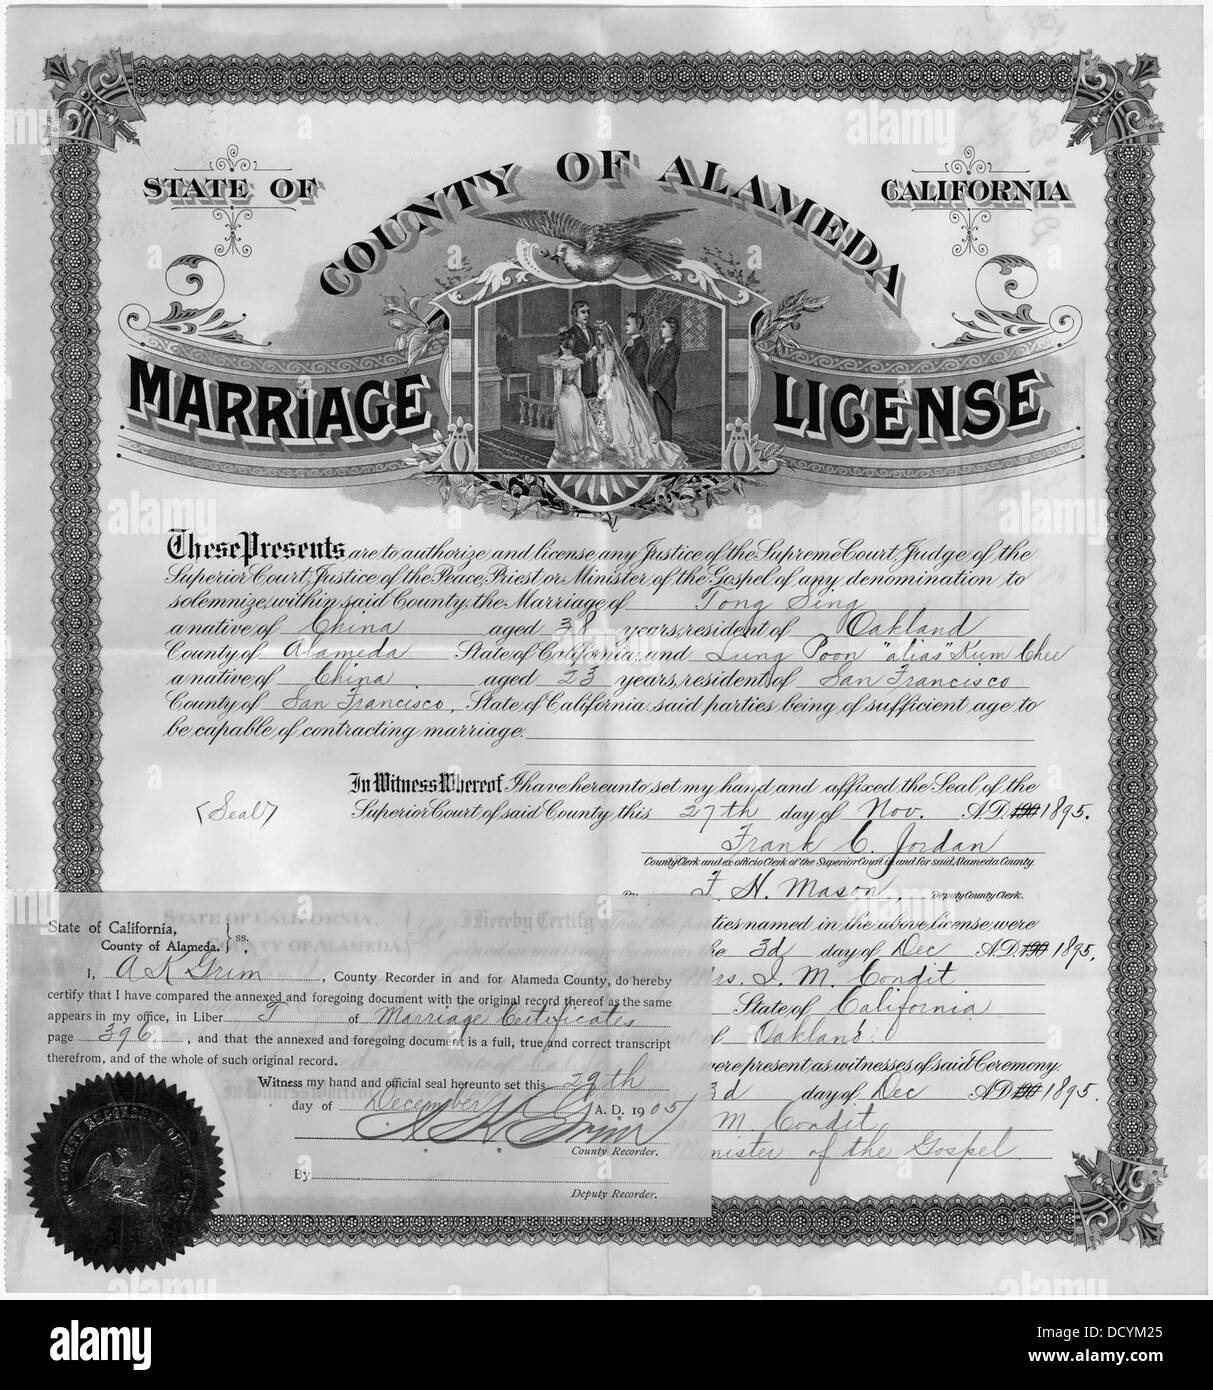 STATE OF
COUNTY OF ALAMEDA
CALIFORNIA
MARRIAGE LICENSE
These Presents, are to authorize and license any Justice of the Supreme Court, Judge of the
Superior Court, Justice of the Peace, Priest or Minister of the Gospel of any denomination to
solemnize, within said County, the Marriage of Tong Sing
a native of China aged 38 years, resident of Oakland
County of Alameda State of California, and Lung Poon "alias" Kum Chee
a native of China aged 23 years, resident of San Francisco
County of San Francisco, State of California said parties being of sufficient age to
be capable of contracting marriage.
In Witness Whereof I have hereunto set my hand and affixed the Seal of the
<Seal> Superior Court of said County this 27th day of Nov. A.D. 190 1895.
Frank C. Jordan
County Clerk and ex officio Clerk of the Superior Court in and for said Alameda County.
F. H. Mason, Deputy County Clerk.
STATE OF CALIFORNIA,
COUNTY OF ALAMEDA
I Hereby Certify That the parties named in the above license were
joined in marriage by me on the 3d day of Dec A.D. 190 1895,
Mrs. I. M. Condit
State of California
of Oakland
were present as witnesses of said Ceremony.
3d day of Dec A.D. 190 1895.
M. Condit
Minister of the Gospel
State of California,
County of Alameda. } ss.
I, A K Grim, County Recorder in and for Alameda County, do hereby
certify that I have compared the annexed and foregoing document with the original record thereof as the same
appears in my office, in Liber T of Marriage Certificates
page 396, and that the annexed and foregoing document is a full, true and correct transcript
therefrom, and of the whole of such original record.
Witness my hand and official seal hereunto set this 29th
day of December A. D. 1905
A K Grim
County Recorder.
By
Deputy Recorder.
alamy
alamy stock photo
DCYM25
www.alamy.com